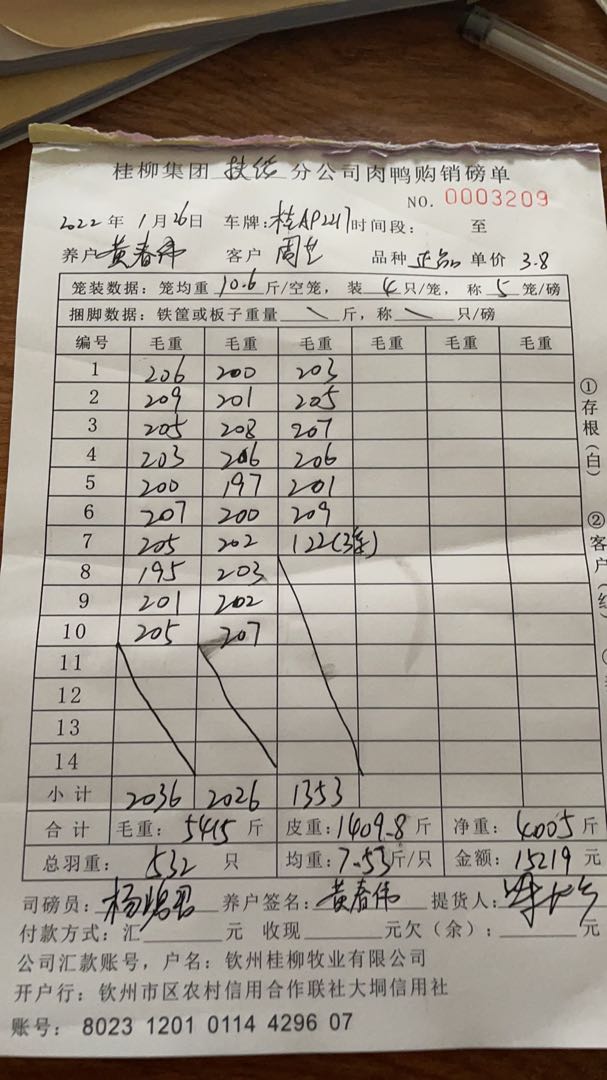 桂柳集团 扶绥 分公司肉鸭购销磅单
NO. 0003209
2022年 1月26日 车牌:桂AP2217 时间段: 至
养户 黄春伟 客户 周 品种 正品 单价 3.8
笼装数据:笼均重 10.6 斤/空笼,装 4 只/笼,称 5 笼/磅
捆脚数据:铁筐或板子重量 \ 斤,称 \ 只/磅
编号 毛重 毛重 毛重 毛重 毛重 毛重
1 206 200 203
2 209 201 205
3 205 208 207
4 203 206 206
5 200 197 201
6 207 200 209
7 205 202 122(3笼)
8 195 203
9 201 202
10 205 207
11
12
13
14
小计 2036 2026 1353
合计 毛重: 5415 斤 皮重: 1409.8 斤 净重: 4005 斤
总羽重: 532 只 均重: 7.53 斤/只 金额: 15219 元
司磅员: 杨 养户签名: 黄春伟 提货人:
付款方式:汇 元 收现 元欠(余): 元
公司汇款账号,户名:钦州桂柳牧业有限公司
开户行:钦州市区农村信用合作联社大垌信用社
账号: 8023 1201 0114 4296 07
①存根(白)
②客户(红